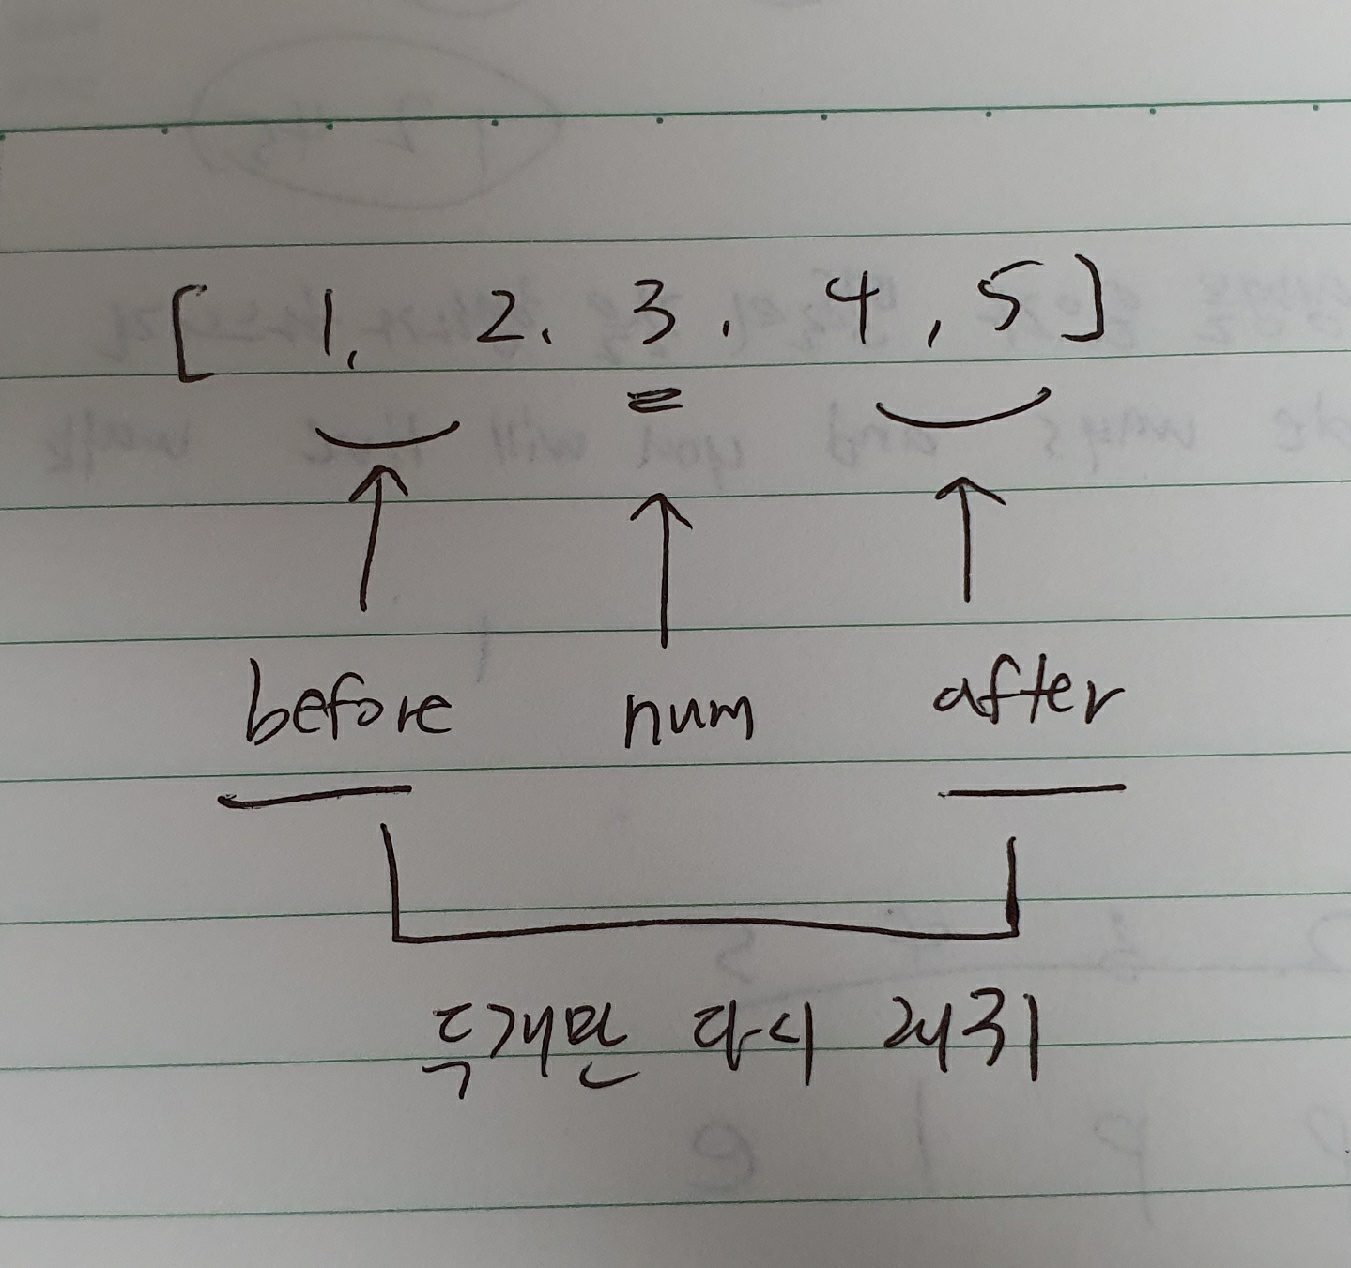 [ 1, 2, 3, 4, 5 ]
before num after
두개만 다시 처리